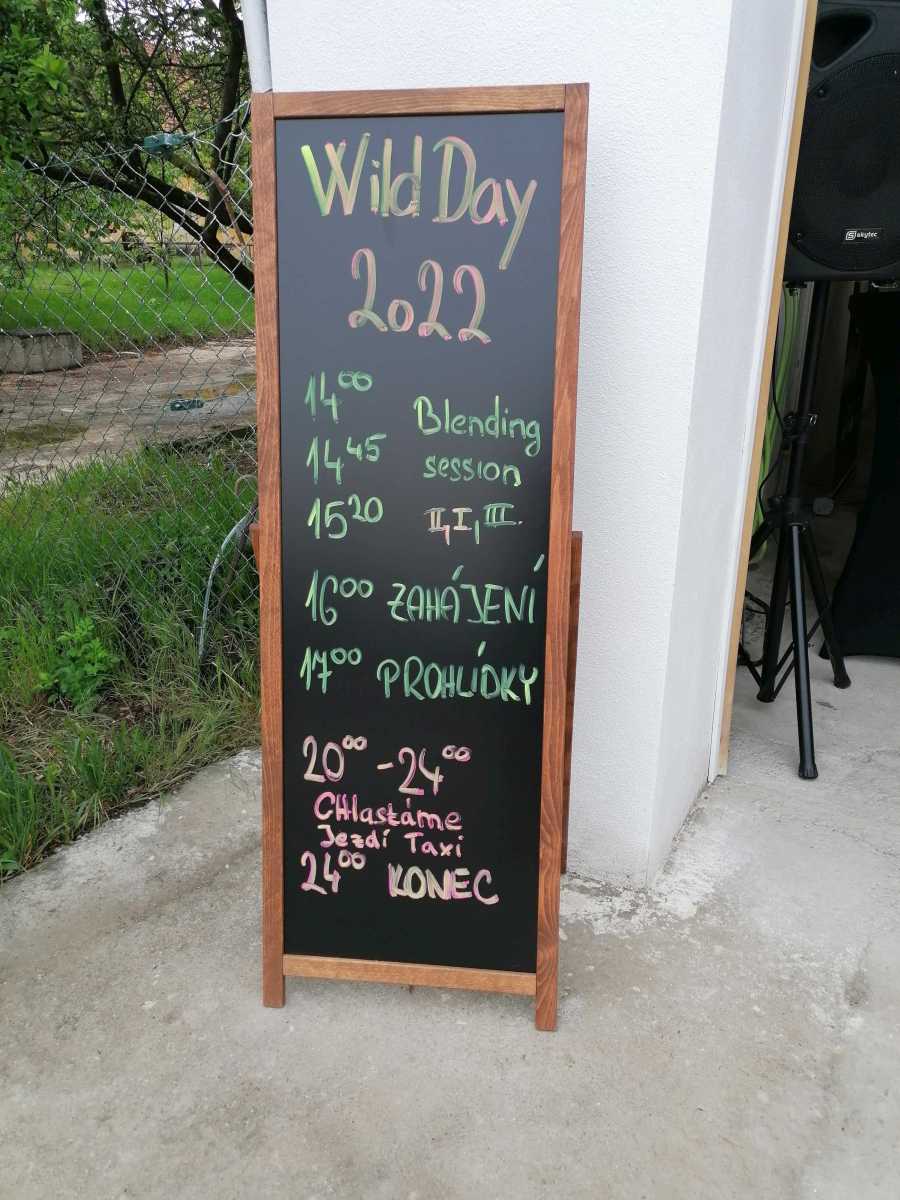 Wild Day
2022
14⁰⁰
14⁴⁵ Blending
15²⁰ session
II, I, III.
16⁰⁰ ZAHÁJENÍ
17⁰⁰ PROHLÍDKY
20⁰⁰ - 24⁰⁰
Chlastáme
Jezdí Taxi
24⁰⁰ KONEC
skytec